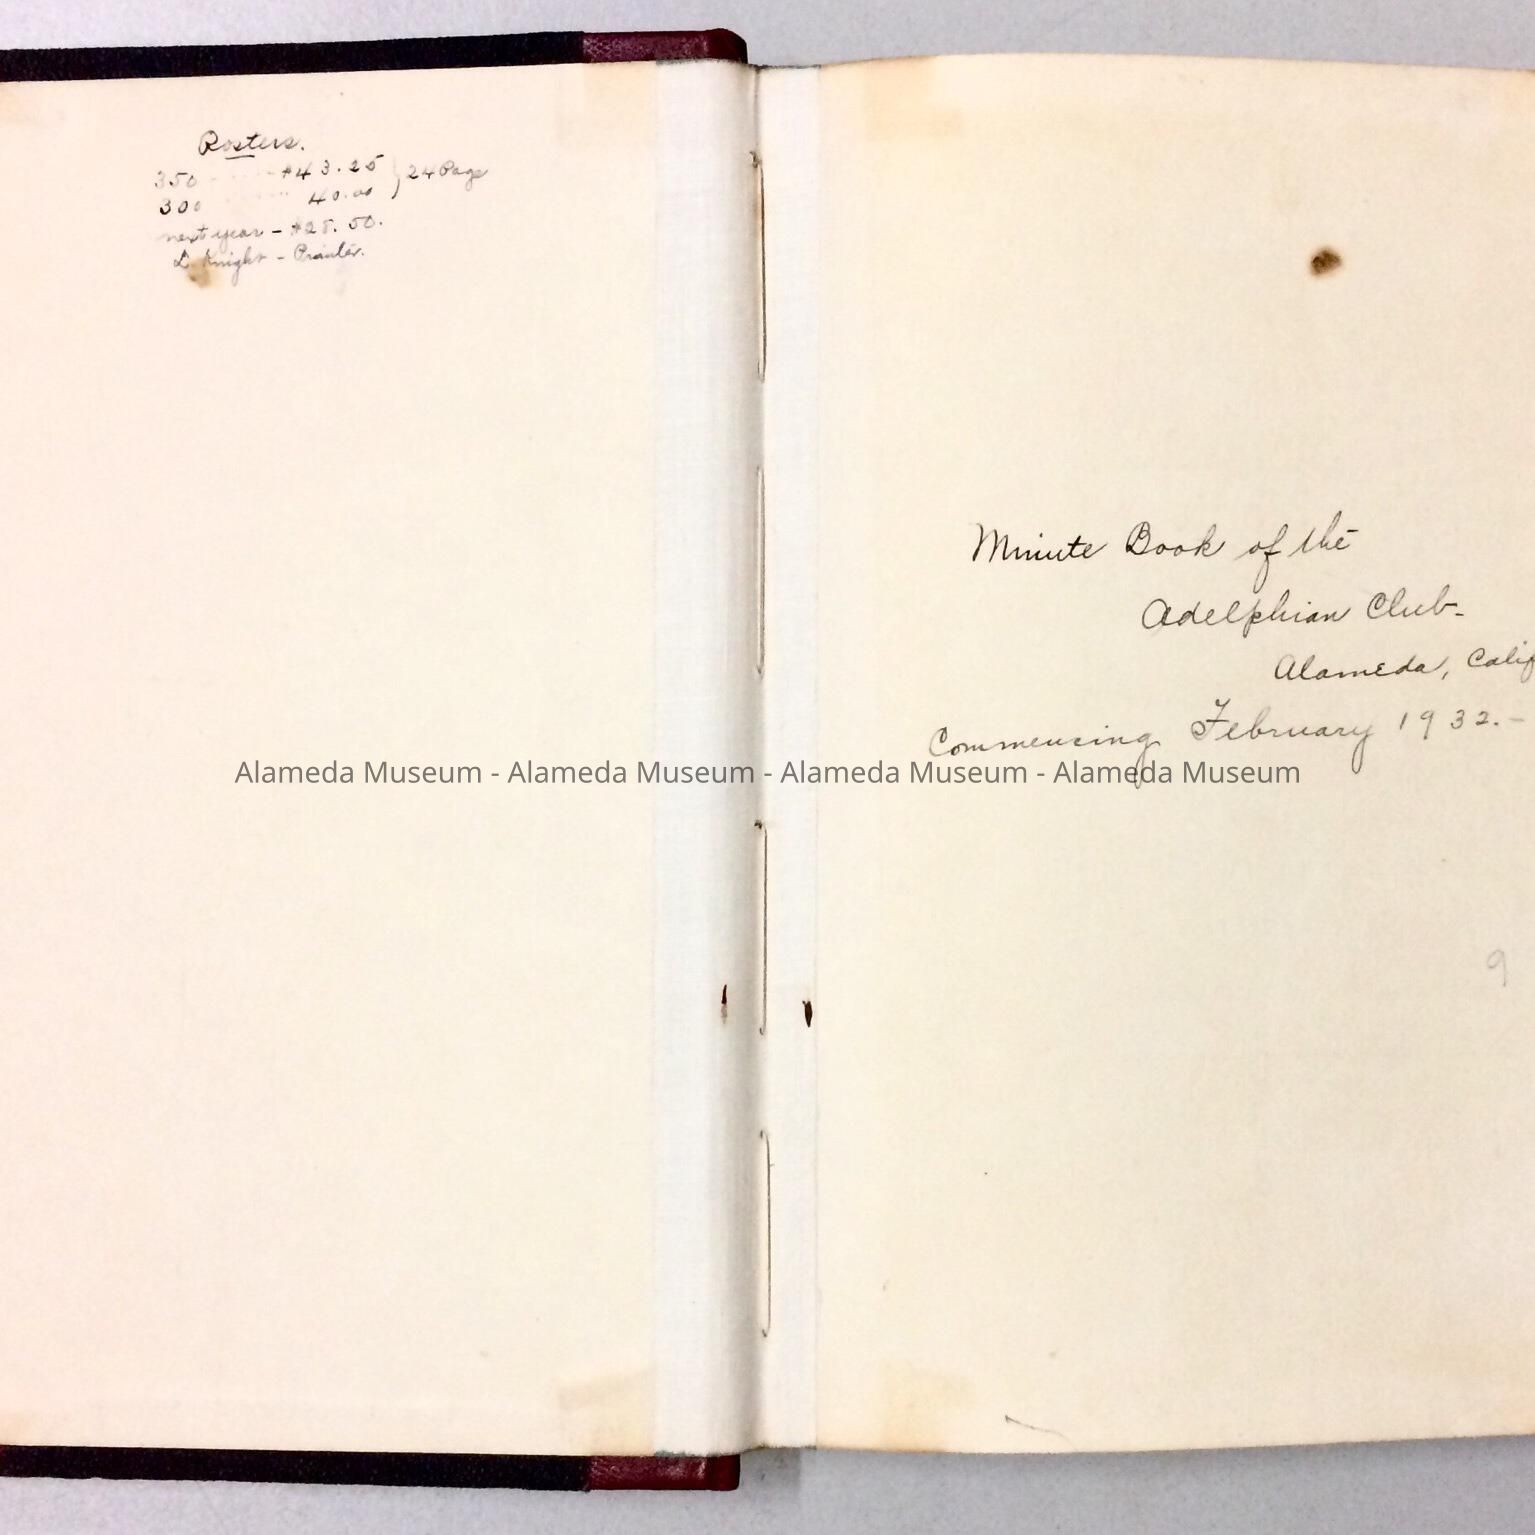 Rosters.
350 - - - - - - $43.25 } 24 Page
300 - - - - - - 40.00
next year - $28.50.
L. Knight - Printer.
Minute Book of the
Adelphian Club-
Alameda, Calif
Commencing February 1932.-
Alameda Museum - Alameda Museum - Alameda Museum - Alameda Museum
9